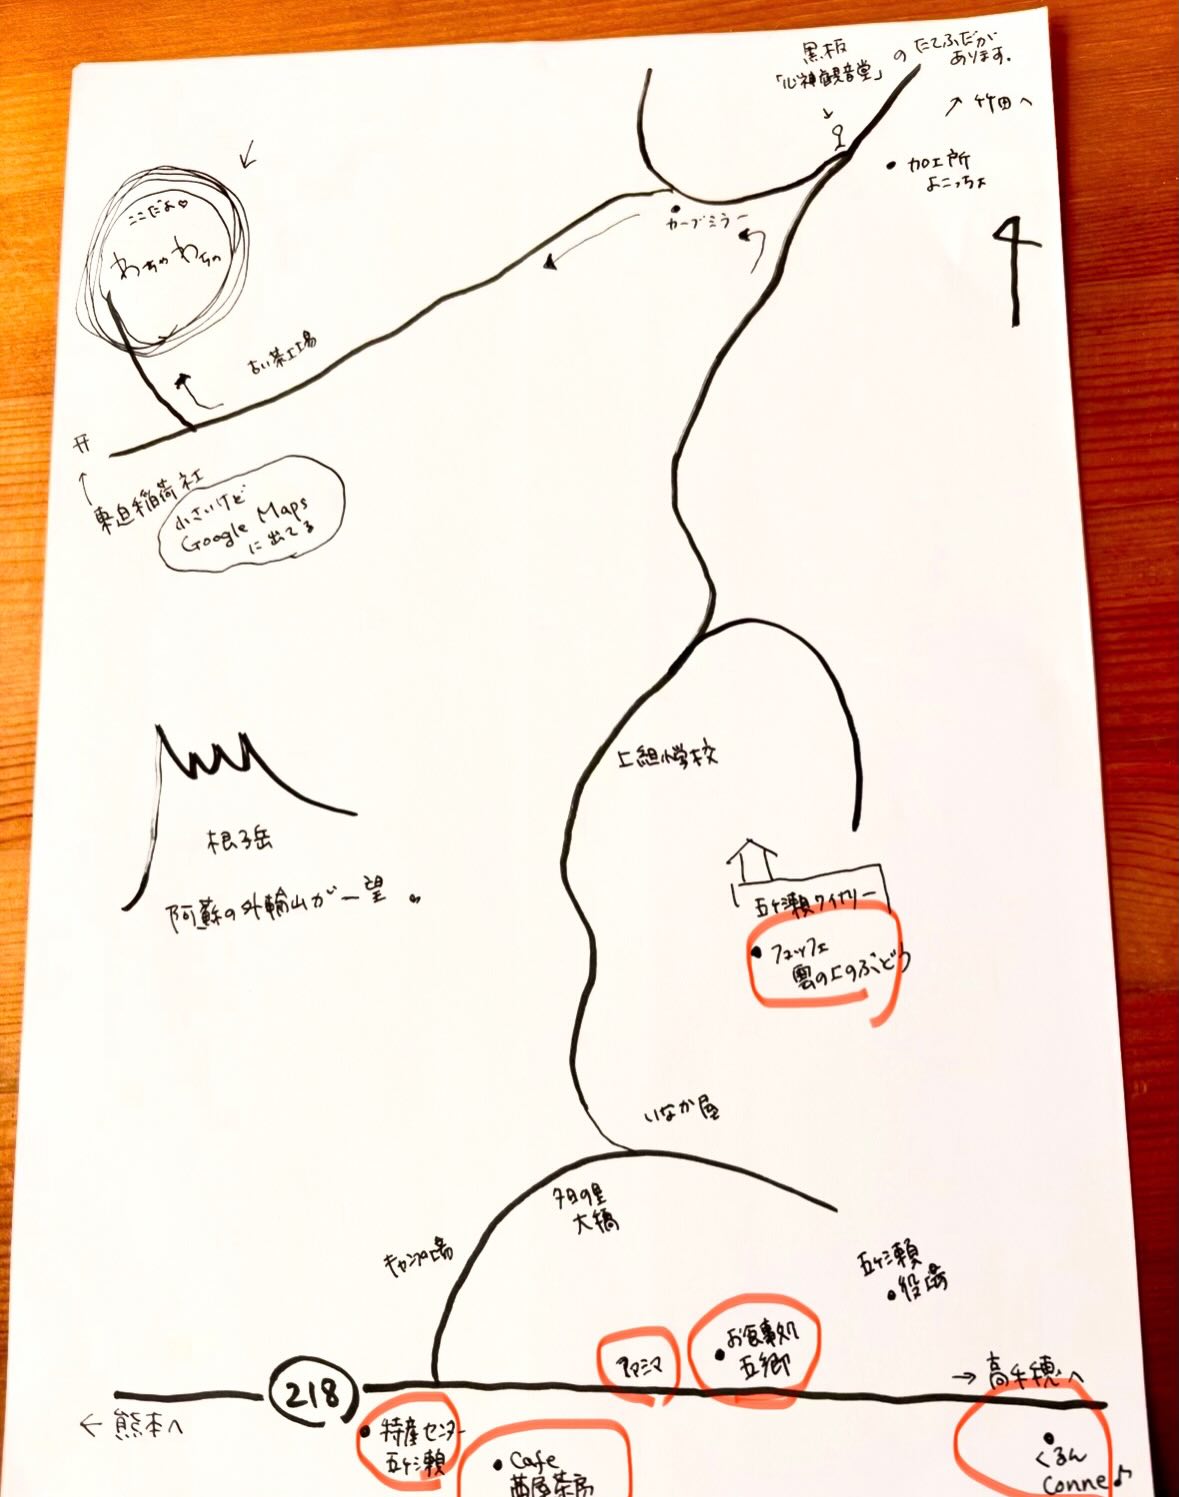 黒板
「心神観音堂」のたてふだが
あります。
↗ 竹田へ
加工所
よこっちょ
カーブミラー
ここだよ♡
わちゃわちゃ
古い茶工場
東迫稲荷社
小さいけど
Google Maps
に出てる
上組小学校
根子岳
阿蘇の外輪山が一望。
五ヶ瀬ワイナリー
雲の上のぶどう
いなか屋
夕日の里
大橋
キャンプ場
五ヶ瀬
役場
お食事処
五郷
→ 高千穂へ
218
← 熊本へ
特産センター
五ヶ瀬
Cafe
くるん
Conne♪